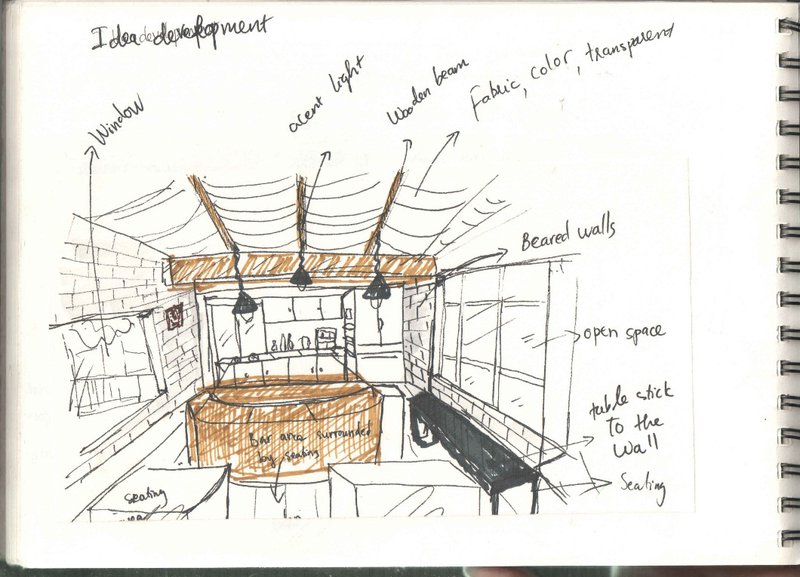 Idea development
Window
acent light
Wooden beam
Fabric, color, transparent
Beared walls
open space
table stick
to the
wall
Seating
Bar area surrounded
by seating
seating
area